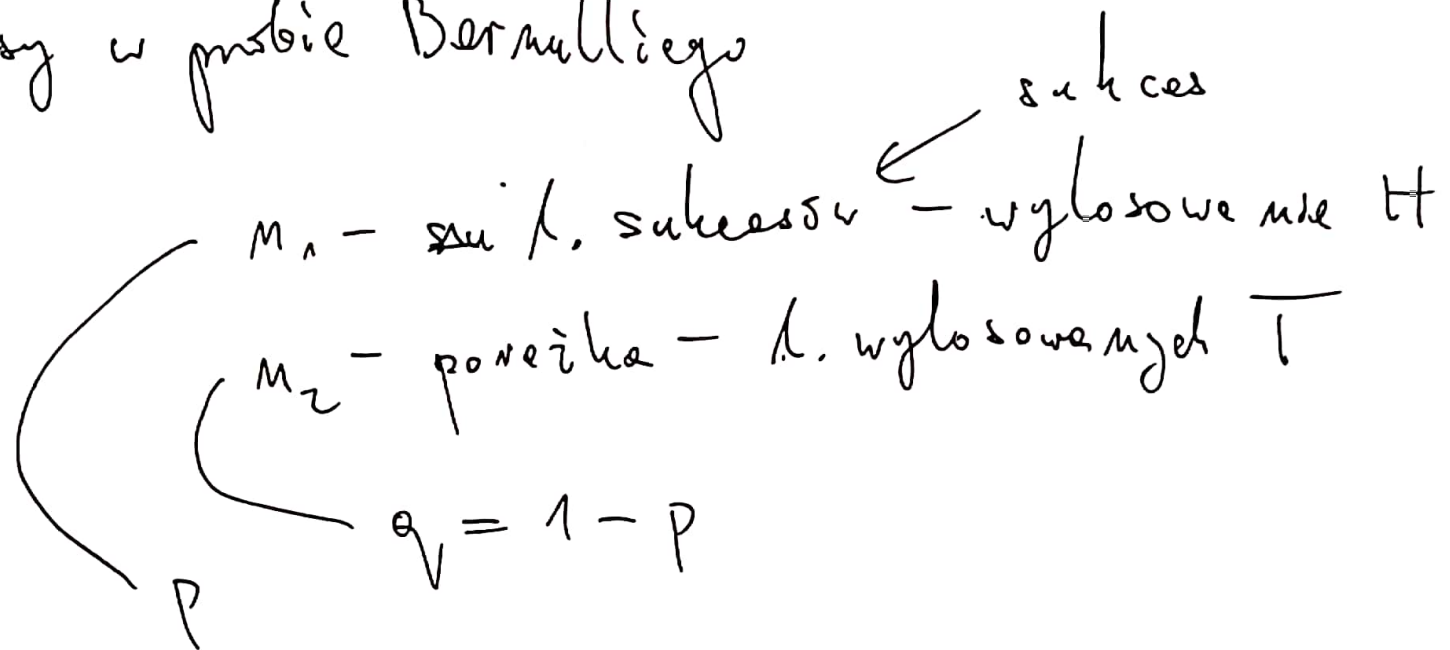 w próbie Bernulliego
sukces
n₁ - l. sukcesów - wylosowanie H
n₂ - porażka - l. wylosowanych T
q = 1 - p
p